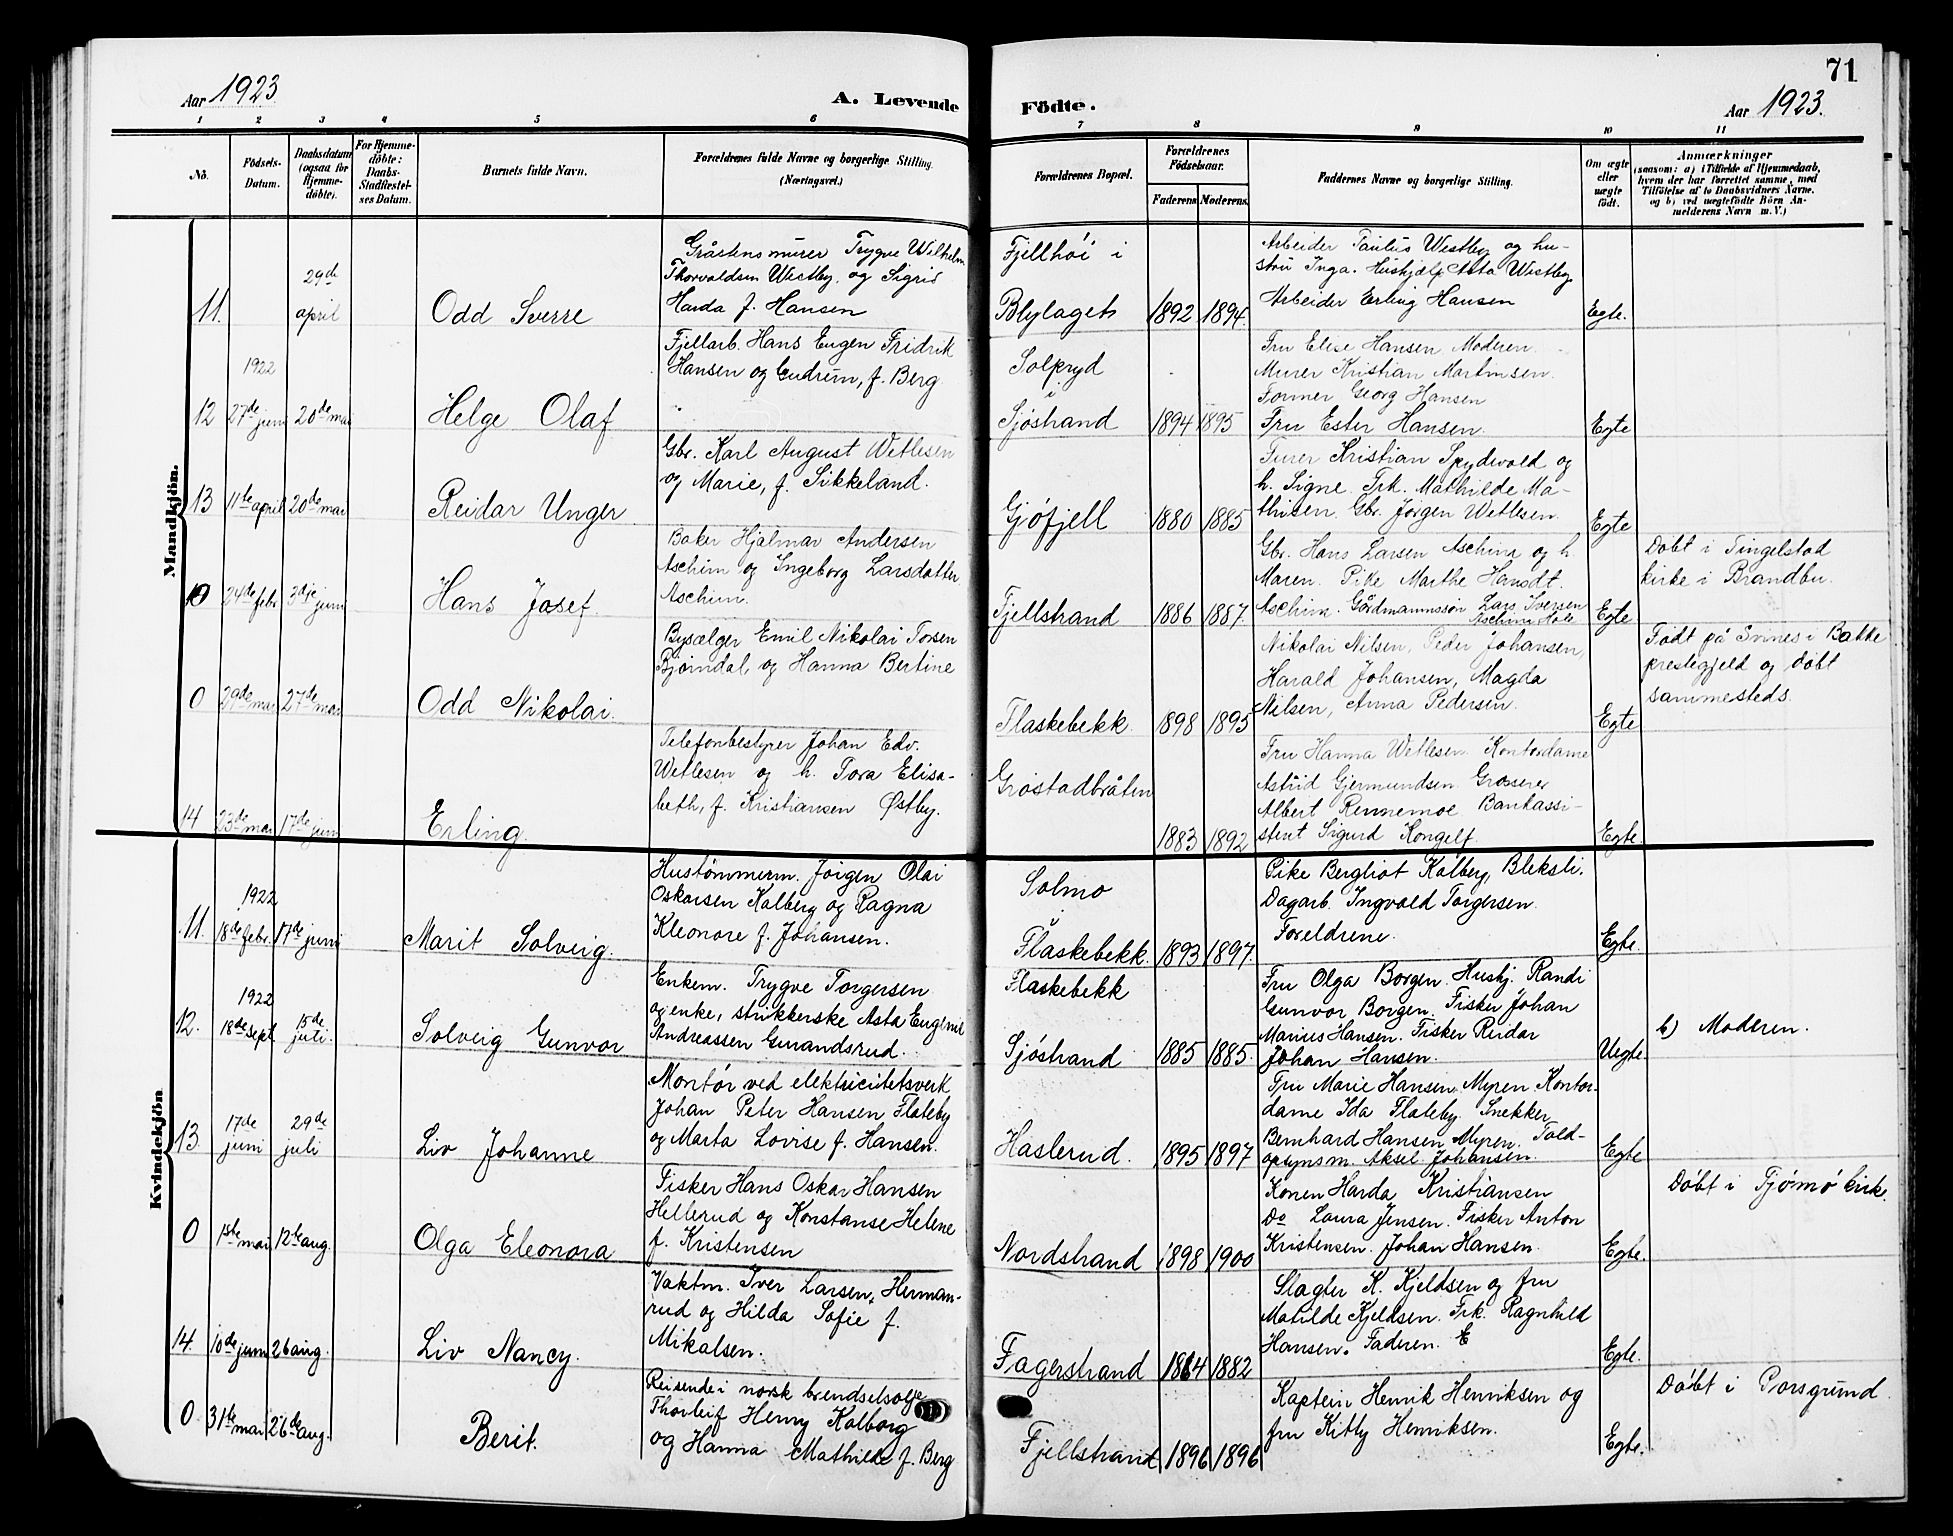 71
Aar 1923.
A. Levende Födte.
Aar 1923.
1 2 3 4 5 6 7 8 9 10 11
No.
Födsels-Datum.
Daabsdatum (ogsaa for Hjemme-döbte).
For Hjemme-döbte: Daabs-Stadfæstel-ses Datum.
Barnets fulde Navn.
Forældrenes fulde Navne og borgerlige Stilling.
(Næringsvei.)
Forældrenes Bopæl.
Forældrenes Födselsaar.
Faderens Moderens.
Faddernes Navne og borgerlige Stilling.
Om ægte eller uægte födt.
Anmærkninger
(saasom: a) i Tilfælde af Hjemmedaab, hvem der har forrettet samme, med Tilföielse af to Daabsvidners Navne, og b) ved uægtefödte Börn Anmelderens Navn m. V.)
Mandkjön.
11. 29de april
Odd Sverre
Gråstensmurer Trygve Wilhelm
Thorvaldsen Westby, og Sigrid
Harda f. Hansen
Fjellhöi i
Blylaget
1892 1894.
Arbeider Paulus Westby og hu-
stru Inga. Hushjælp Asta Westby
Arbeider Erling Hansen
Egte.
12 1922 27de juni 20de mai
Helge Olaf
Fjellarb. Hans Eugen Fridrik
Hansen og Gudrun, f. Berg
Solpryd
i
Sjøstrand
1894 1895
Fru Elise Hansen. Moderen.
Murer Kristian Martinsen.
Former Georg Hansen
Fru Ester Hansen.
Egte
13 11te april 20de mai
Reidar Unger
Gbr. Karl August Wetlesen
og Marie, f. Sikkeland.
Gjøfjell
1880 1885
Furer Kristian Spydevold og
h. Signe. Frk. Mathilde Ma-
thisen. Gbr. Jørgen Wetlesen.
Egte
0 24de febr. 3dje juni
Hans Josef.
Baker Hjalmar Andersen
Aschim og Ingeborg Larsdatter
Aschim.
Fjellstrand
1886 1887.
Gbr. Hans Larsen Aschim og h.
Maren. Pike Marthe Hansdt.
Aschim. Gårdmannssøn Lars Iversen
Egte
Døbt i Tingelstad
kirke i Brandbu.
0 29de mar. 27de mai
Odd Nikolai.
Bysælger Emil Nikolai Torsen
Bjørndal og Hanna Bertine
Flaskebekk.
1898 1895
Nikolai Nilsen, Peder Johansen,
Harald Johansen, Magda
Nilsen, Anna Pedersen.
Egte
Født på Svines i Bakke
prestegjeld og døbt
sammesteds.
14 23de mai 17de juni
Erling.
Telefonbestyrer Johan Edv.
Wetlesen og h. Tora Elisa-
beth, f. Kristiansen Østby.
Grøstadbråten
1883 1892
Fru Hanna Wetlesen. Kontordame
Astrid Gjermundsen. Grosserer
Albert Rennemoe Bankassi-
stent Sigurd Kongelf.
Egte.
Kvindekjön
11. 1922 18de febr. 17de juni
Marit Solveig.
Hustømmerm. Jørgen Olai
Oskarsen Kolberg og Ragna
Kleonore f. Johansen.
Solmo
Flaskebekk.
1893 1897.
Pike Bergliot Kolberg, Bleksli.
Dagarb. Ingvald Torgersen.
Foreldrene.
Egte.
12. 1922 18de sept. 15de juli.
Solveig Gunvor
Enkem. Trygve Torgersen
og enke, strikkerske Asta Eugenie
Andreassen Gurandsrud.
Flaskebekk
Sjøstrand
1885 1885.
Fru Olga Borgen. Hushj. Randi
Gunvor Borgen. Fisker Johan
Marius Hansen. Fisker Reidar
Johan Hansen.
Uegte.
b) Moderen.
13 17de juni 29de juli
Liv Johanne
Montør ved elektricitetsverk
Johan Peter Hansen Flateby
og Marta Lovise f. Hansen.
Haslerud.
1895 1897
Fru Marie Hansen, Myren Kontor-
dame Ida Flateby. Snekker
Bernhard Hansen Myren. Told-
opsynsm. Aksel Johansen.
Egte
0 1ste mai 12te aug.
Olga Eleonora
Fisker Hans Oskar Hansen
Hellerud og Konstanse Helene
f. Kristensen
Nordstrand
1898 1900
Konen Harda Kristiansen
Do Laura Jensen. Fisker Anton
Kristensen. Johan Hansen.
Egte.
Døbt i Tjømø kirke.
14. 10de juni 26 aug.
Liv Nancy.
Vaktm. Iver Larsen, Herman-
rud og Hilda Sofie f.
Mikalsen.
Fagerstrand
1884 1882
Slagter K. Kjeldsen og fru
Matilde Kjeldsen. Frk. Ragnhild
Hansen. Faderen.
Egte.
0 31te mai 26de aug.
Berit.
Reisende i norsk brendselsolje
Thorleif Henry Kolborg
og Hanna Mathilde f. Berg
Fjellstrand
1896 1896
Kaptein Henrik Henriksen og
fru Kitty Henriksen.
Egte.
Døbt i Porsgrund